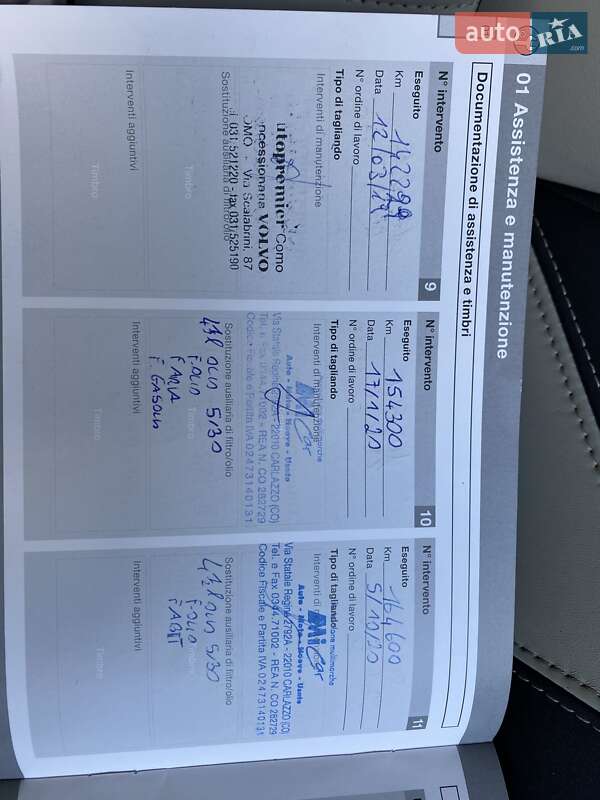 auto RIA .com
01 Assistenza e manutenzione
Documentazione di assistenza e timbri
N° intervento 9
Eseguito
Km 142299
Data 12/03/19
N° ordine di lavoro
Tipo di tagliando
Interventi di manutenzione
utopremier Como
oncessionaria VOLVO
OMO - Via Scalabrini, 87
031.521220 - fax 031/525190
Sostituzione ausiliaria di filtro/olio
Timbro
Interventi aggiuntivi
Timbro
N° intervento 10
Eseguito
Km 154300
Data 17/1/20
N° ordine di lavoro
Tipo di tagliando
Interventi di manutenzione
car
Auto - Moto - Nuove - Usate
Via Statale Regina 2792A - 22010 CARLAZZO (CO)
Tel. e Fax 0344.71002 - REA N. CO 282729
Codice Fiscale e Partita IVA 02473140131
Sostituzione ausiliaria di filtro/olio
5/30
F. OLIO
F ARIA
F. GASOLIO
Timbro
Interventi aggiuntivi
Timbro
N° intervento 11
Eseguito
Km 164600
Data 5/10/20
N° ordine di lavoro
Tipo di tagliando
Interventi di
Mi car
Auto - Moto - Nuove - Usate
Via Statale Regina 2792A - 22010 CARLAZZO (CO)
Tel. e Fax 0344.71002 - REA N. CO 282729
Codice Fiscale e Partita IVA 02473140131
Sostituzione ausiliaria di filtro/olio
5/30
F. OLIO
Interventi aggiuntivi
Timbro